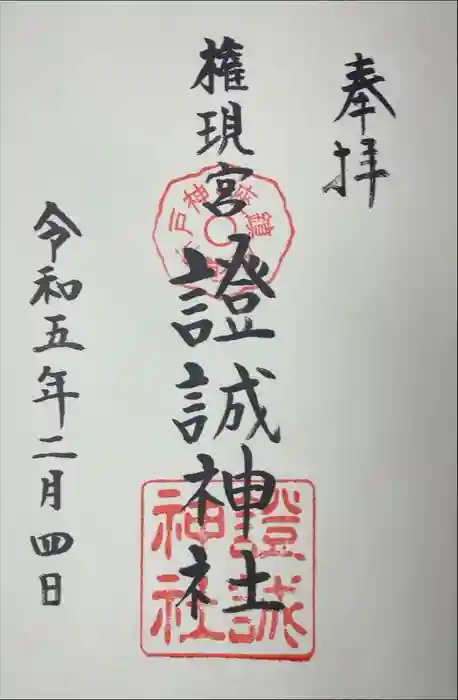 奉拝
権現宮 證誠神社
令和五年二月四日
證誠
神社